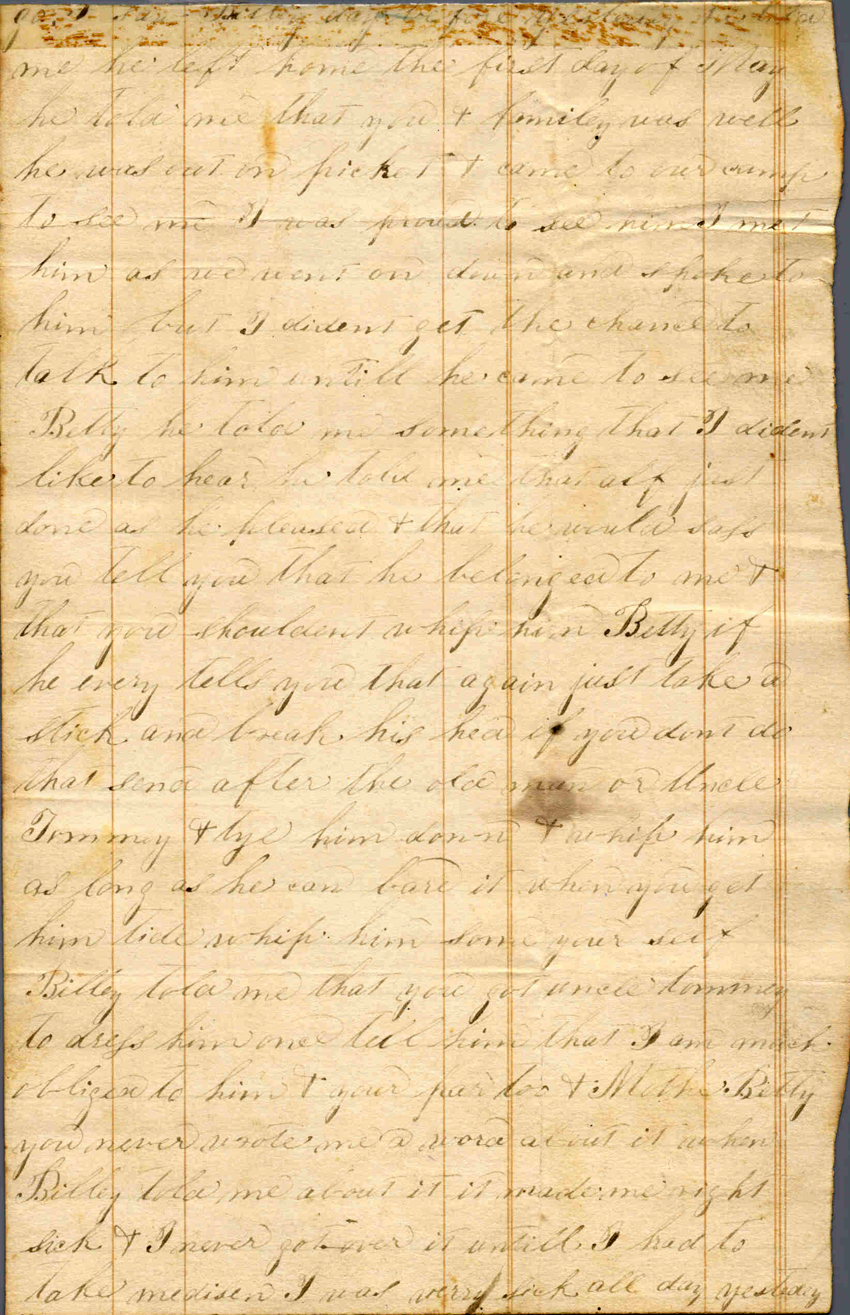 go I saw Billey day be fore
me he left home the first day of May
he told me that you & familey was well
he was out on picket & came to our camp
to see me I was proud to see him I met
him as we went on down and spoke to
him but I dident get the chance to
talk to him untill he came to see me
Betty he told me something that I dident
like to hear he told me that alf just
done as he pleased & that he would sass
you tell you that he belonged to me &
that you shouldent whip him Betty if
he every tells you that again just take a
stick and break his hed if you dont do
that send after the old man or Uncle
Tommey & tye him down & whip him
as long as he can bare it when you get
him tide whip him some your self
Billey told me that you got uncle tommey
to dress him one tell him that I am much
obliged to him & your par too & Mother Betty
you never wrote me a word about it when
Billey told me about it it made me right
sick & I never got over it untill I had to
take medisen I was verry sick all day yesteday